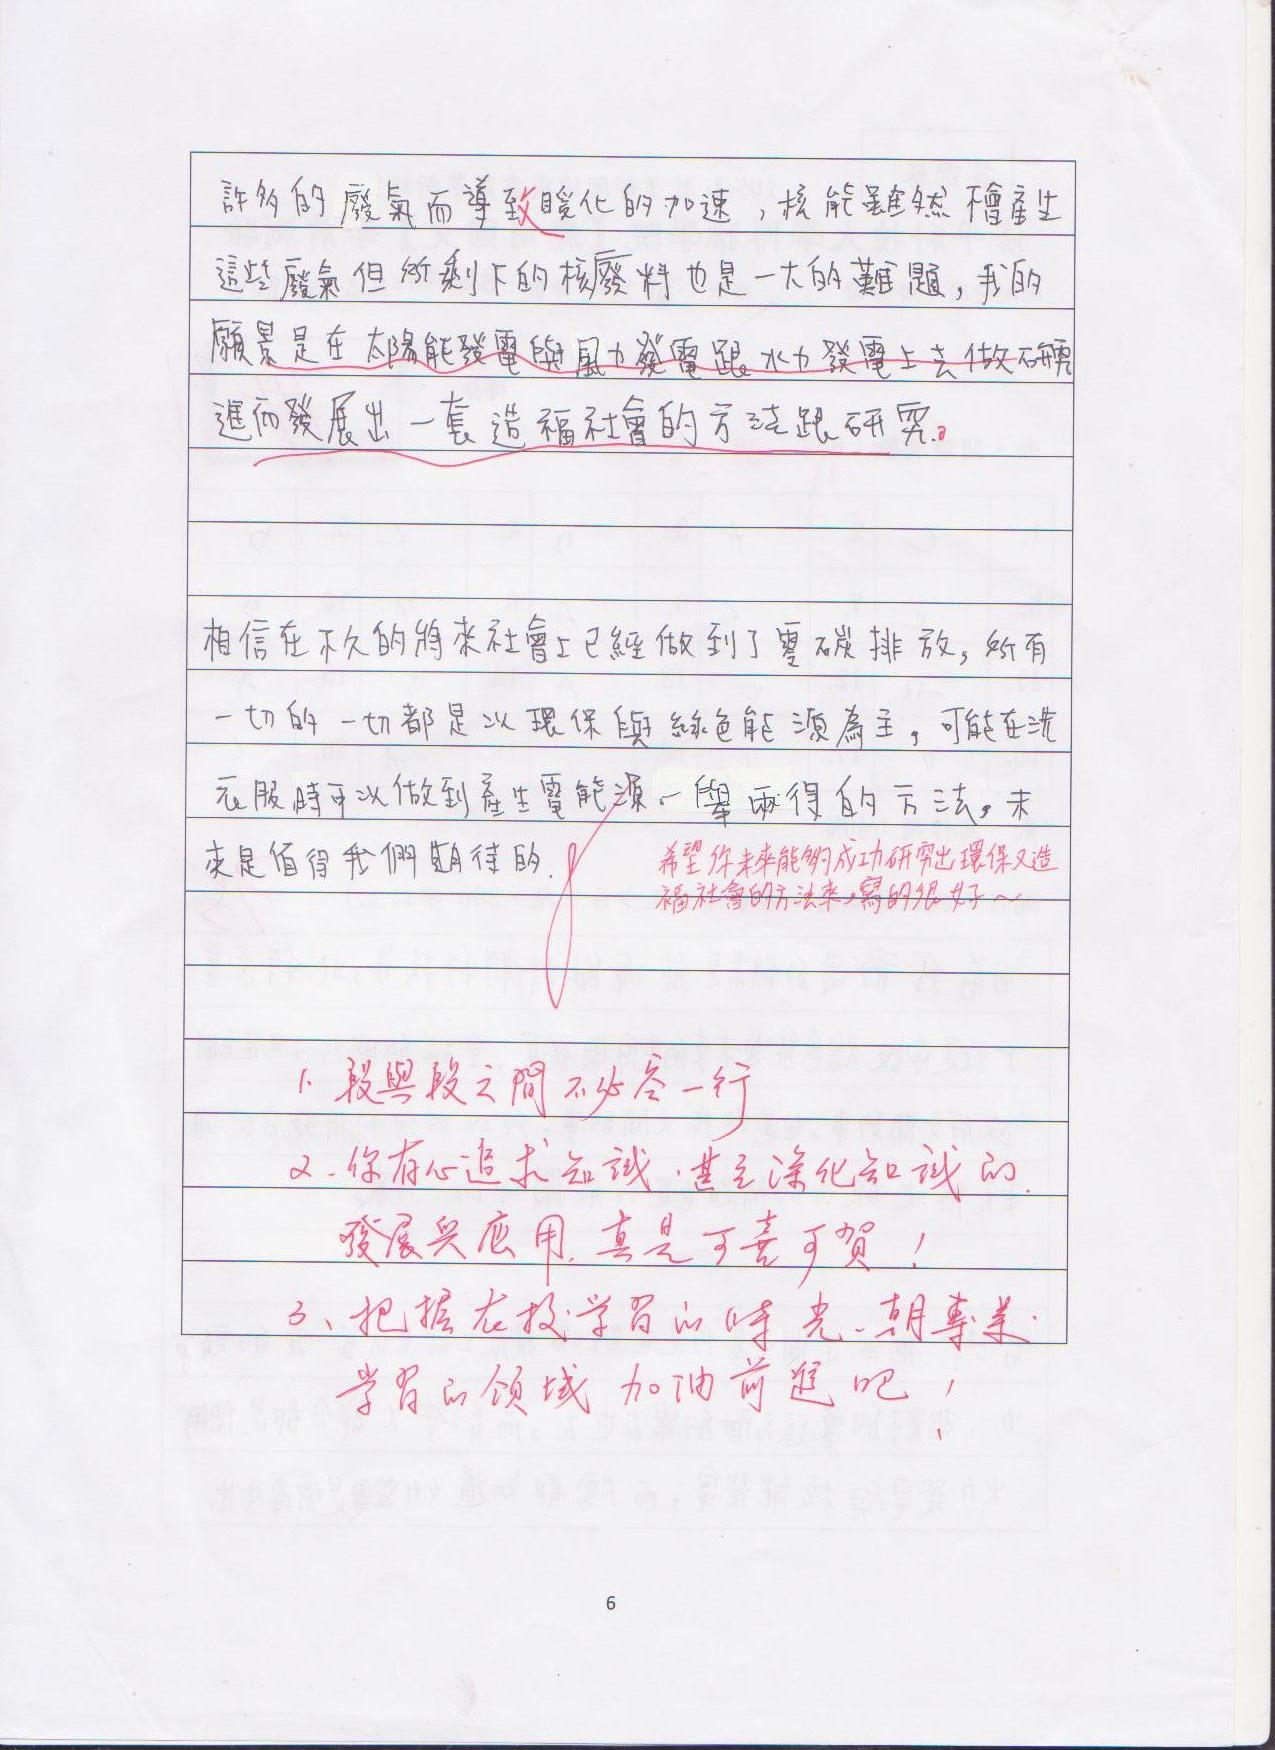 許多的廢氣而導致暖化的加速，核能雖然不會產生
這些廢氣但所剩下的核廢料也是一大的難題，我的
願景是在太陽能發電與風力發電跟水力發電上去做研究
進而發展出一套造福社會的方法跟研究。
相信在不久的將來社會上已經做到了零碳排放，所有
一切的一切都是以環保與綠色能源為主，可能在洗
衣服時可以做到產生電能源，一舉兩得的方法，未
來是值得我們期待的.
希望你未來能夠成功研究出環保又造
福社會的方法來，寫的很好～
1、段與段之間不必空一行
2、你有心追求知識，甚至深化知識的
發展與應用，真是可喜可賀！
3、把握在校學習的時光，朝專業
學習的領域加油前進吧！
6